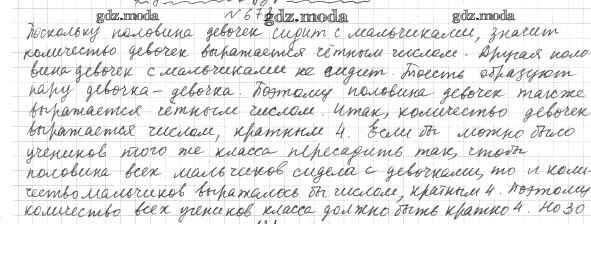 № 678
gdz.moda gdz.moda gdz.moda
Поскольку половина девочек сидит с мальчиками, значит
количество девочек выражается чётным числом. Другая поло-
вина девочек с мальчиками не сидит. Тоесть образуют
пару девочка-девочка. Поэтому половина девочек также
выражается чётным числом. Итак, количество девочек
выражается числом, кратным 4. Если бы можно было
учеников того же класса пересадить так, чтобы
половина всех мальчиков сидела с девочками, то и коли-
чество мальчиков выражалось бы числом, кратным 4. Поэтому
количество всех учеников класса должно быть кратно 4. Но 30